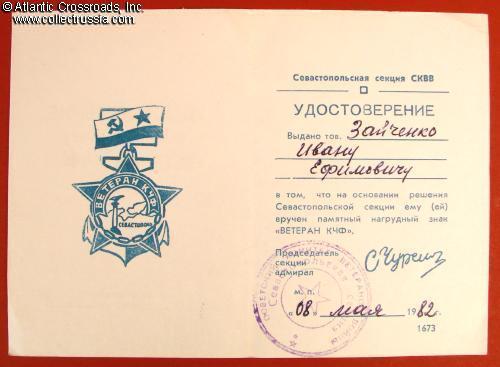 © Atlantic Crossroads, Inc.
www.collectrussia.com
ВЕТЕРАН КЧФ
СЕВАСТОПОЛЬ
Севастопольская секция СКВВ
УДОСТОВЕРЕНИЕ
Выдано тов. Зайченко
Ивану
Ефимовичу
в том, что на основании решения
Севастопольской секции ему (ей)
вручен памятный нагрудный знак
«ВЕТЕРАН КЧФ».
Председатель
секции
адмирал
м. п.
«08» мая 1982 г.
1673